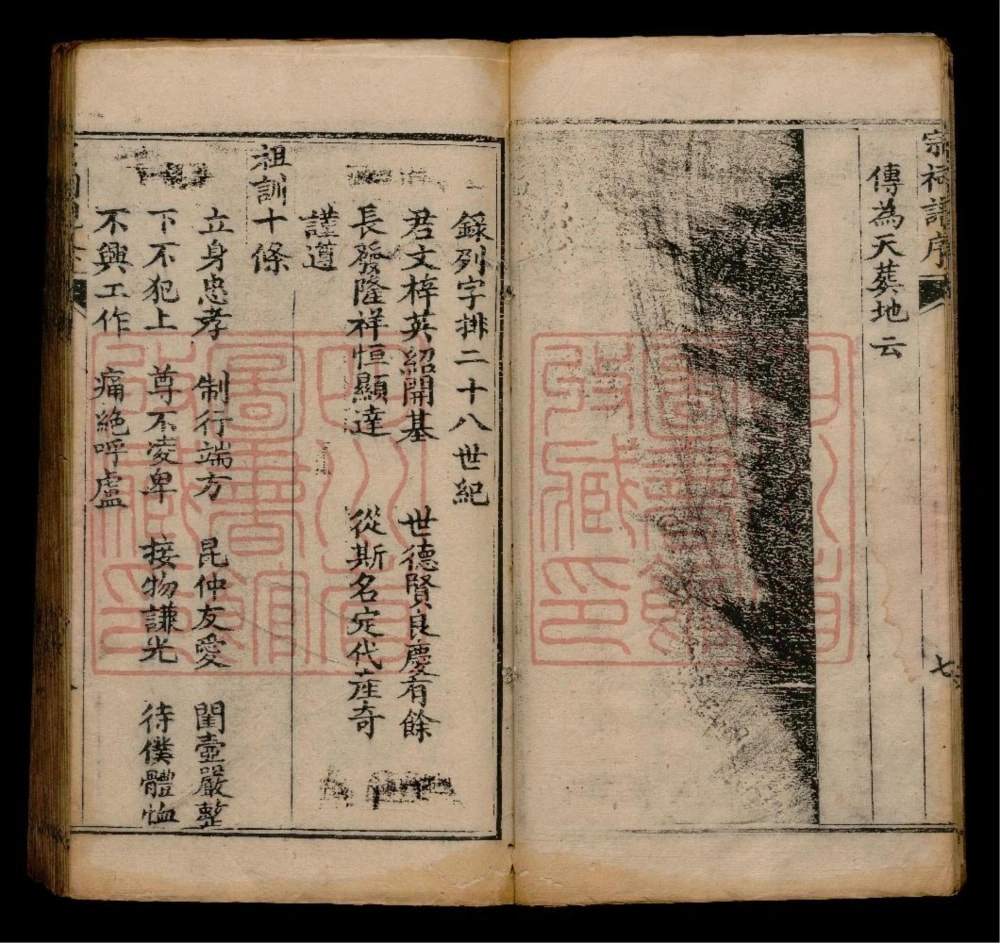 宗祠譜序
傳為天葬地云
七
錄列字排二十八世紀
君文梓英紹開基 世德賢良慶有餘
長發隆祥恒顯達 從斯名定代產奇
謹遵
祖訓十條
立身忠孝 制行端方 昆仲友愛 閨壼嚴整
下不犯上 尊不凌卑 接物謙光 待僕體恤
不興工作 痛絕呼盧
四川省
圖書館
收藏印
四川省
圖書館
收藏印